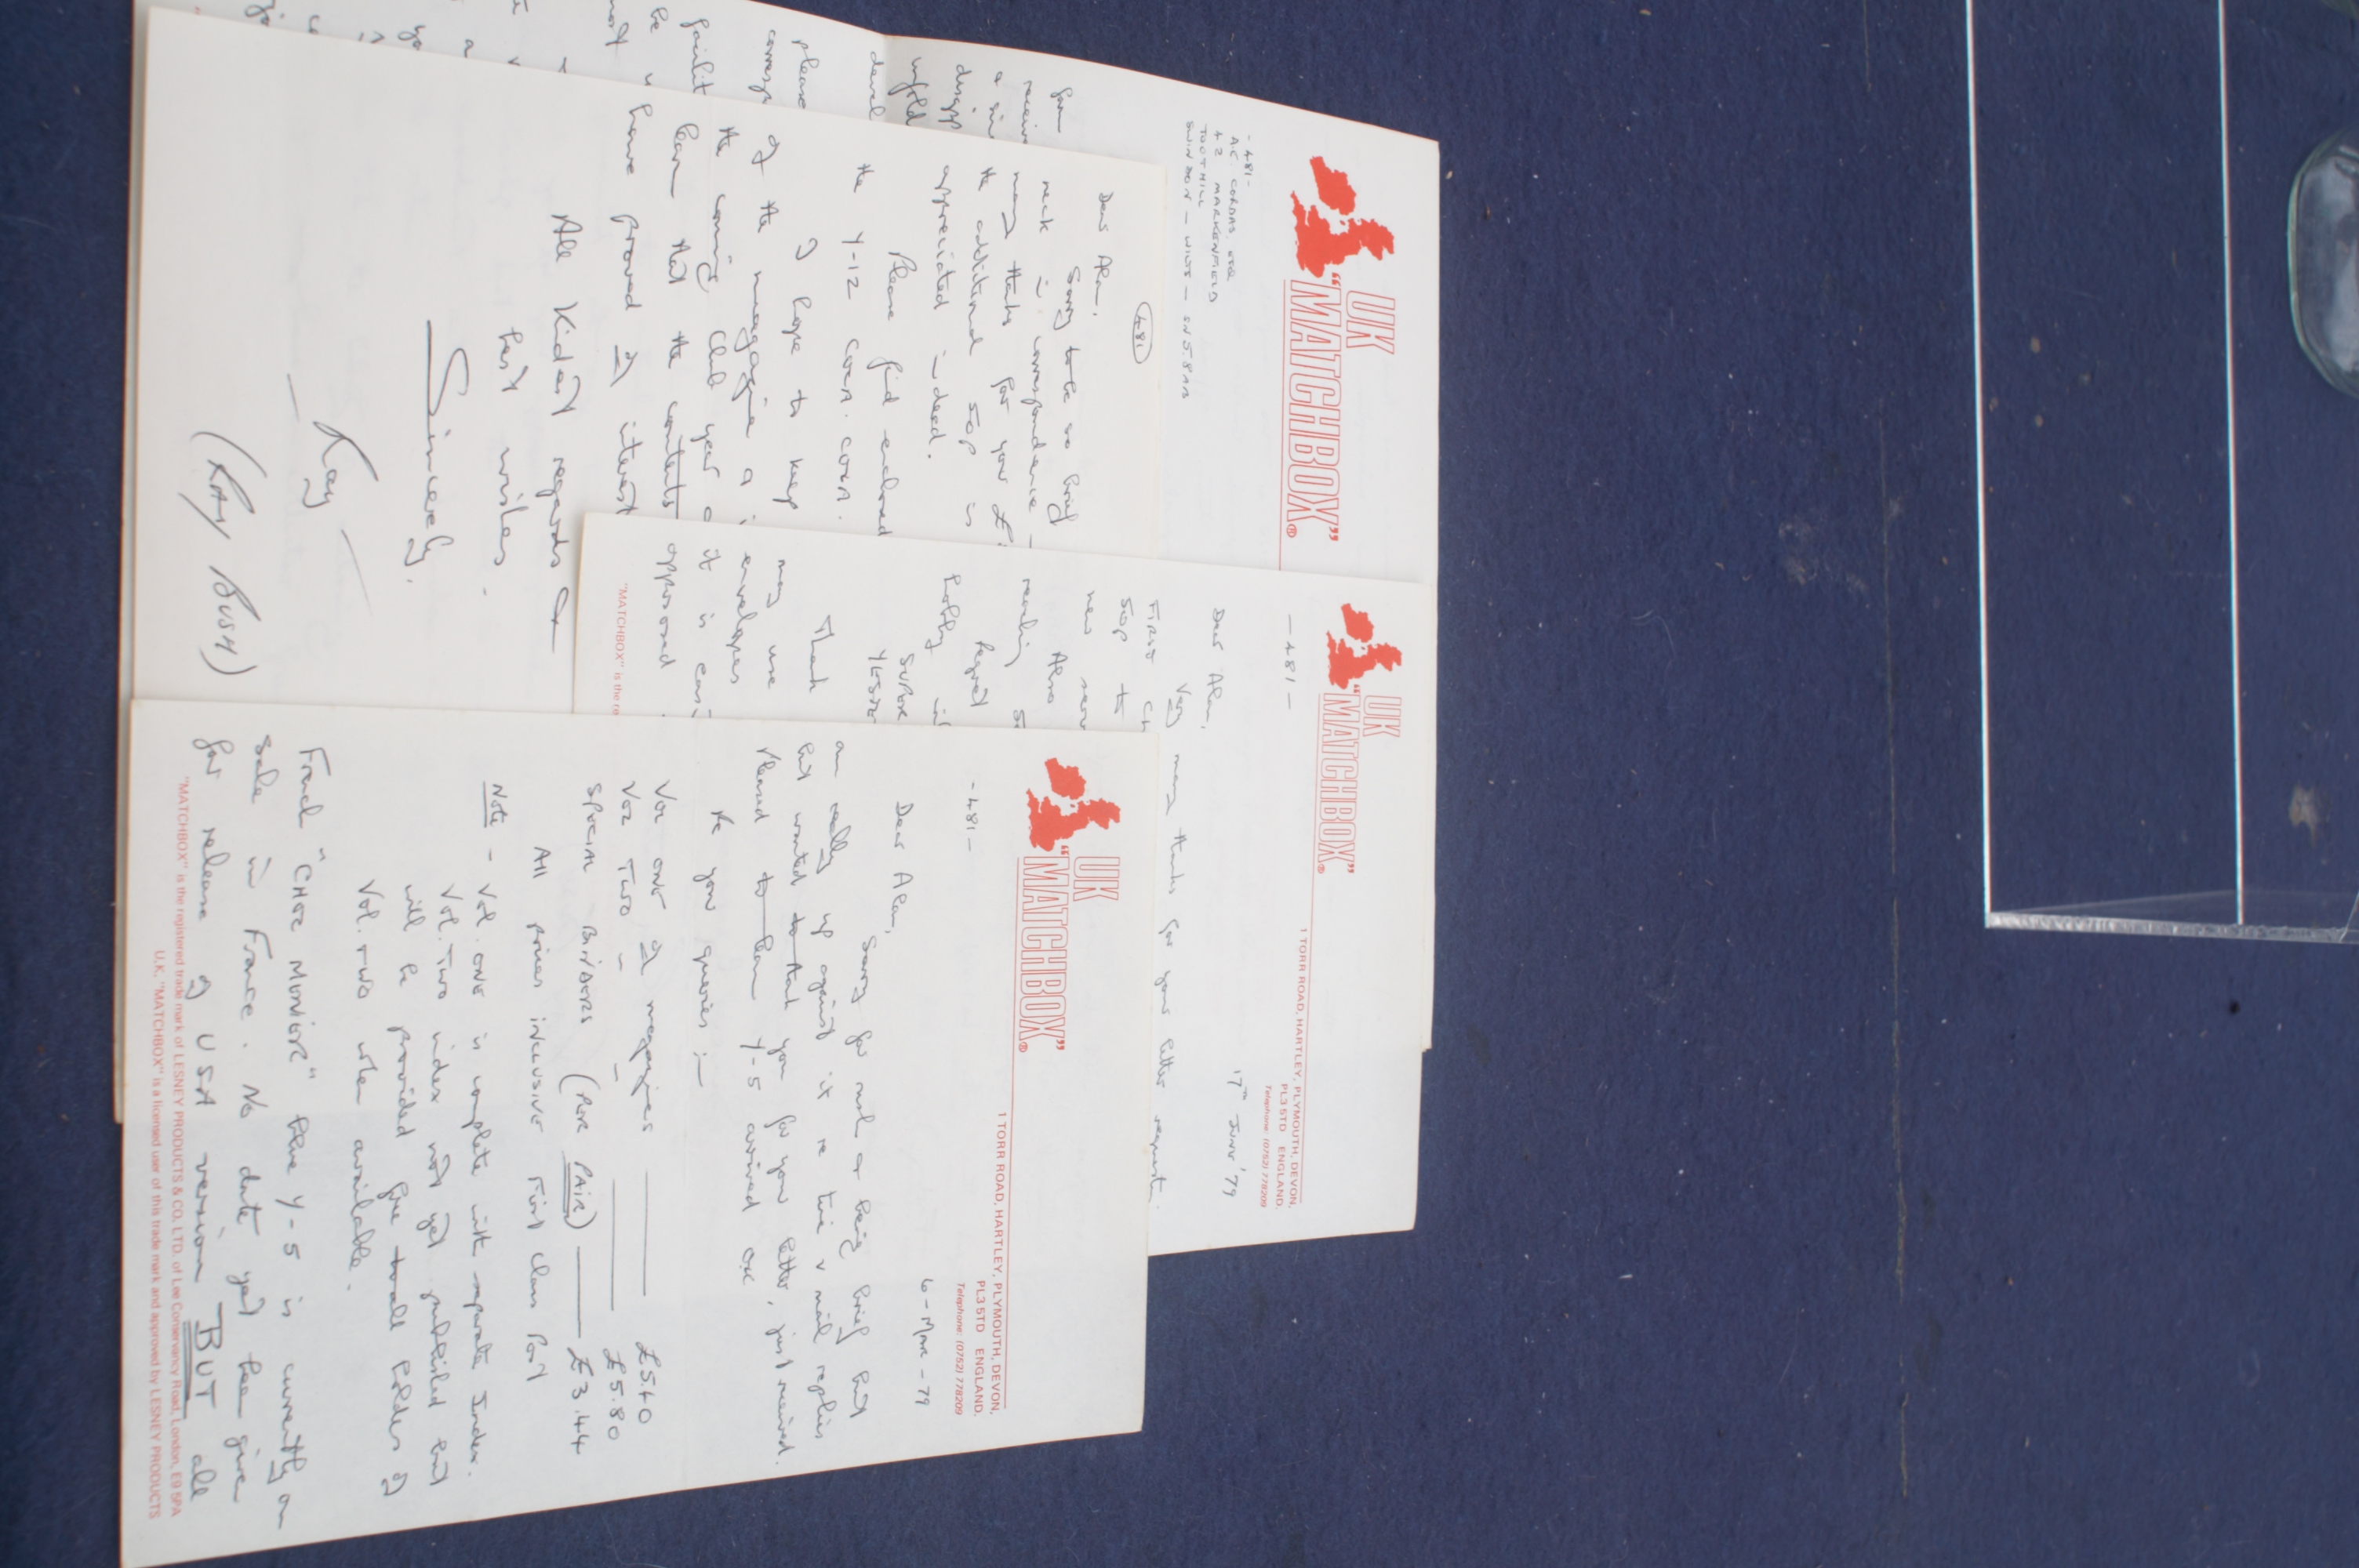 UK
"MATCHBOX"®
- 481 -
42 MARKENFIELD
TOOTHILL
SWINDON - WILTS - SN5.8
please
Dear Alan,
481
Sorry to be so brief
neck in correspondence -
many thanks for your £
the additional 50p is
appreciated indeed.
Please find enclosed
the Y-12 COCA. COLA.
I hope to keep
of the magazine a
the coming Club year
learn that the contents
have proved of interest
All Kindest regards &
best wishes.
Sincerely.
Ray
(RAY BUSH)
UK
"MATCHBOX"®
1 TORR ROAD, HARTLEY, PLYMOUTH, DEVON,
PL3 5TD ENGLAND.
Telephone: (0752) 778209
- 481 -
17TH JUNE '79
Dear Alan,
Very many thanks for your letter request.
FIRST
50p to
new
Also
Regret
hobby
Thank
may use
envelopes
it is
"MATCHBOX" is the
UK
"MATCHBOX"®
1 TORR ROAD, HARTLEY, PLYMOUTH, DEVON,
PL3 5TD ENGLAND.
Telephone: (0752) 778209
- 481 -
6 - MAR - 79
Dear Alan,
Sorry for such a being brief but
am really up against it re time v mail replies
but wanted to thank you for your letter, just received.
Pleased to learn Y-5 arrived OK
Re your queries :-
VOL ONE of magazines £5.40
VOL TWO - £5.80
SPECIAL BINDERS (PER PAIR) £3.44
All prices inclusive First Class Post
Note - Vol. ONE is complete with separate Index.
Vol. TWO index not yet published but
will be provided free to all holders of
Vol. TWO when available.
French "CHOC MENIER" blue Y-5 is currently on
sale in France. No date yet been given
for release of USA version BUT all
"MATCHBOX" is the registered trade mark of LESNEY PRODUCTS & CO. LTD. of Lee Conservancy Road, London, E9 5PA
U.K. "MATCHBOX" is a licensed user of this trade mark and approved by LESNEY PRODUCTS